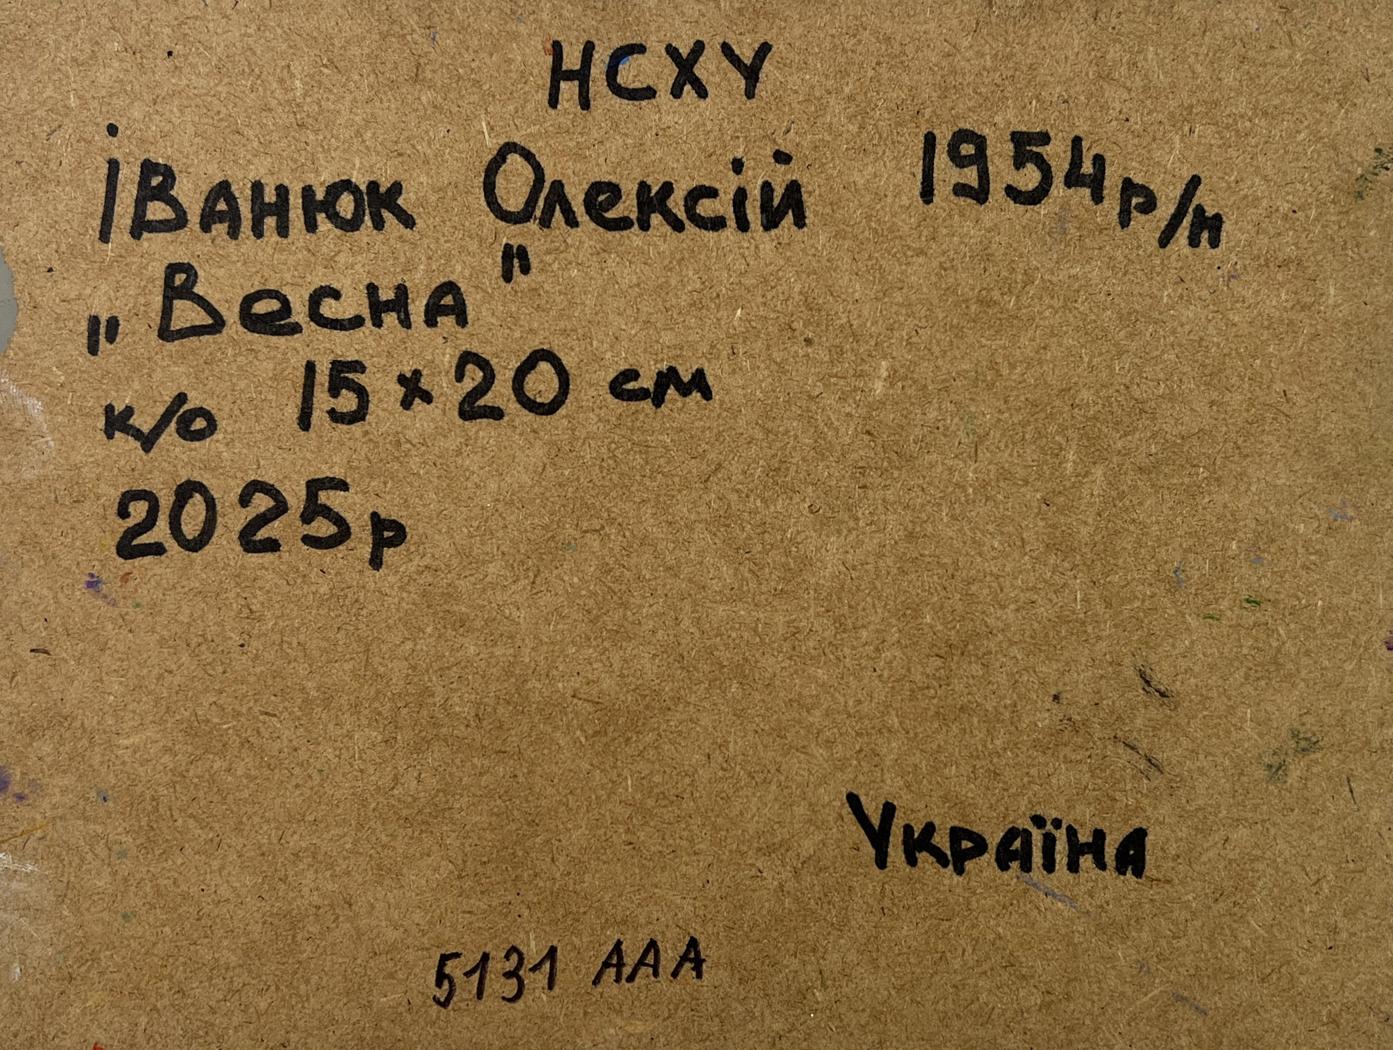 НСХУ
Іванюк Олексій 1954 р/н
„Весна"
к/о 15×20 см
2025р
Україна
5131 AAA